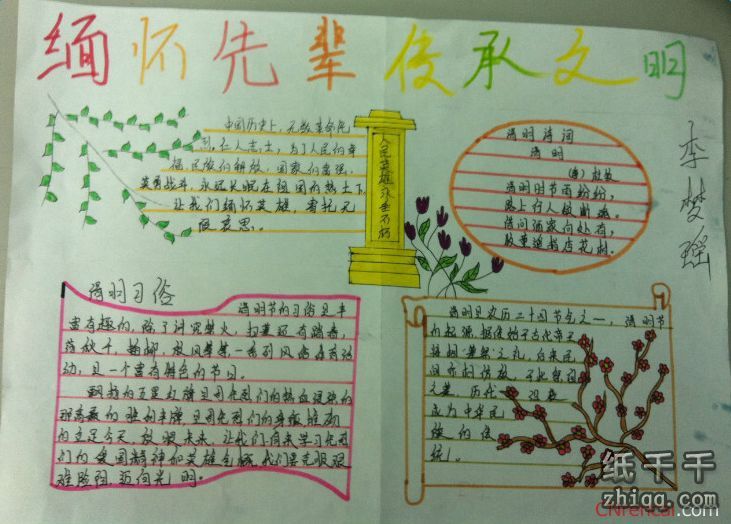 缅怀先辈 传承文明
李梦瑶
中国历史上,无数革命先
烈,仁人志士,为了人民的幸
福,民族的解放,国家的富强,
英勇战斗,永远长眠在祖国的热土下,
让我们缅怀英雄,寄托无
限哀思。
人民英雄永垂不朽
清明诗词
清明
(唐)杜牧
清明时节雨纷纷,
路上行人欲断魂。
借问酒家何处有,
牧童遥指杏花村。
清明习俗
清明节的习俗是丰
富有趣的,除了讲究禁火,扫墓还有踏青,
荡秋千,插柳,放风筝等,一系列风俗体育活
动,是一个富有特色的节日。
飘扬的五星红旗是用先烈们的热血浸染的
的立足今天,放眼未来,让我们肩来学习先烈
们的爱国精神和英雄气概,我们要克服艰
难险阻,迈向光明。
清明是农历二十四节气之一,清明节
的起源,据传始于古代帝王
将相"墓祭"之礼,后来民
间亦相仿效,于此祭祖
扫墓,历代沿袭
成为中华民
族的传
统。
纸千千
zhiqq.com
CNrencai.com